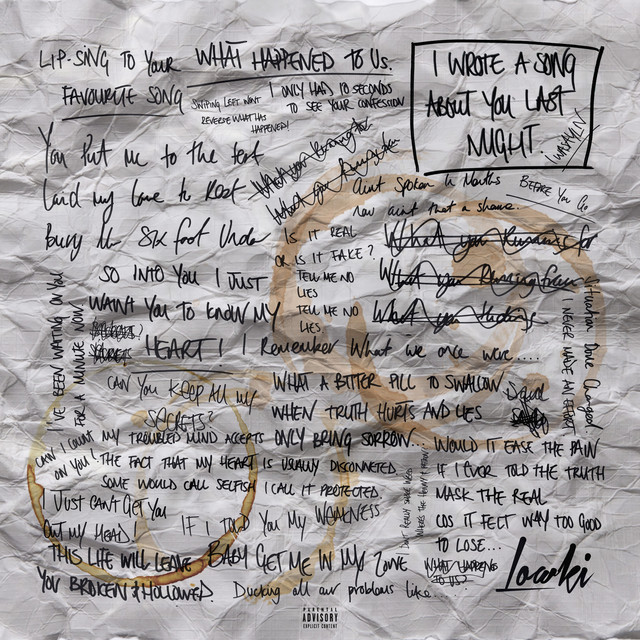 LIP-SING TO YOUR
FAVOURITE SONG
WHAT HAPPENED TO US.
SWIPING LEFT WONT
REVERSE WHAT HAS
HAPPENED!
I ONLY HAD 10 SECONDS
TO SEE YOUR CONFESSION
I WROTE A SONG
ABOUT YOU LAST
NIGHT.
You Put me to the test
Laid my love to Rest
Bury Me Six foot Under
What you
What you
Aint Spoken In Months
Now aint that a shame
BEFORE YOU GO
IS IT REAL
OR IS IT FAKE?
TELL ME NO
LIES
TELL ME NO
LIES
What you Running for
What you Running from
What you
SO INTO YOU I JUST
WANT YOU TO KNOW MY
HEART!
I Remember What we once were....
I'VE BEEN WAITING ON YOU
FOR A MINUTE NOW
Situation Done Changed
I NEVER MADE AN EFFORT
CAN YOU KEEP ALL MY
SECRETS?
WHAT A BITTER PILL TO SWALLOW
WHEN TRUTH HURTS AND LIES
ONLY BRING SORROW...
CAN I COUNT
ON YOU!
MY TROUBLED MIND ACCEPTS
THE FACT THAT MY HEART IS USUALLY DISCONNECTED
SOME WOULD CALL SELFISH I CALL IT PROTECTED.
WOULD IT EASE THE PAIN
IF I EVER TOLD THE TRUTH
MASK THE REAL
COS IT FELT WAY TOO GOOD
TO LOSE...
I JUST CANT GET YOU
OUT MY HEAD!
IF I TOLD YOU MY WEAKNESS
THIS LIFE WILL LEAVE
YOU BROKEN & HOLLOWED.
BABY GET ME IN MY ZONE
Ducking all our problems like...
WHAT HAPPENED
TO US?
Lowki
PARENTAL
ADVISORY
EXPLICIT CONTENT